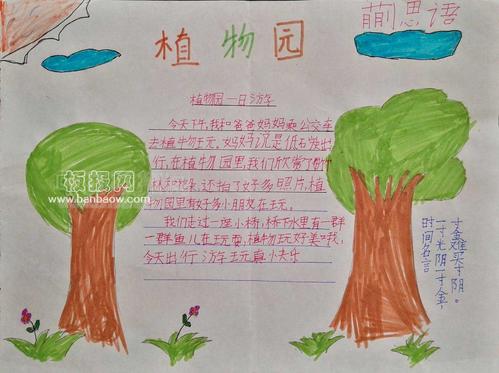 植物园
蒯思语
植物园一日游
今天下午,我和爸爸妈妈乘公交车
去植物玩,妈妈说是低石炭出
行,在植物园里,我们欣赏了
林和,还拍了好多照片,植
物园里有好多小朋友在玩。
我们走过一座小桥,桥下水里有一群
一群鱼儿在玩耍,植物玩好美哦,
今天出行游玩真快乐
时间名言
一寸光阴一寸金,
寸金难买寸阴。
板报网
www.banbaow.com